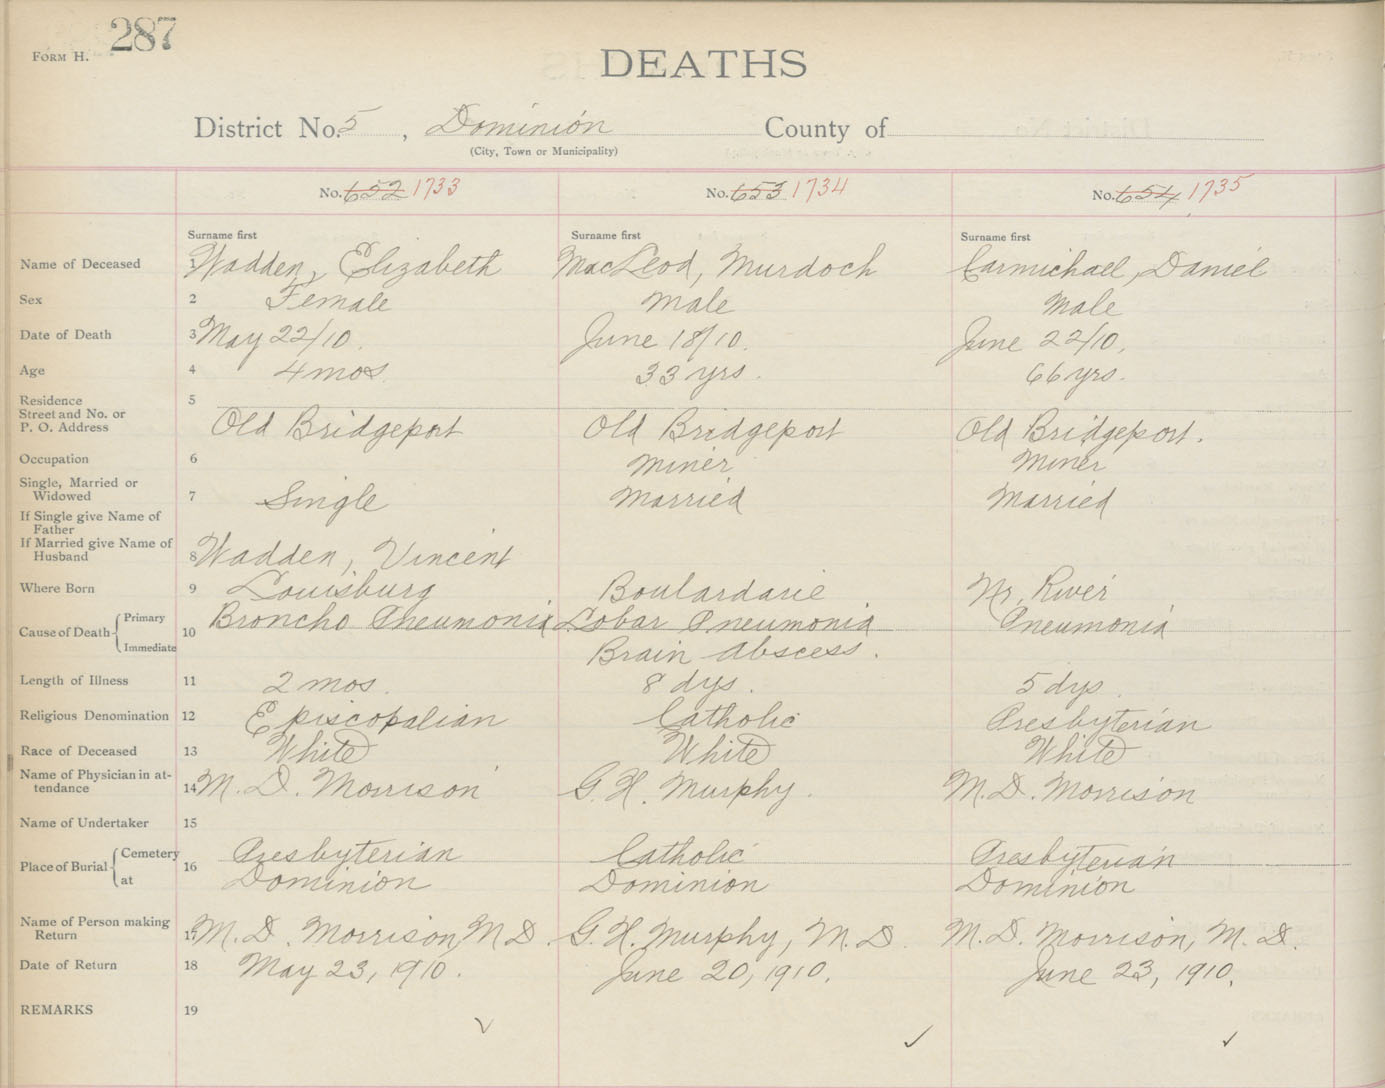 287
FORM H.
DEATHS
District No. 5, Dominion County of
(City, Town or Municipality)
No. 652 1733 No. 653 1734 No. 654 1735
Surname first Surname first Surname first
Name of Deceased 1 Wadden, Elizabeth MacLeod, Murdoch Carmichael, Daniel
Sex 2 Female Male Male
Date of Death 3 May 22/10. June 18/10. June 22/10.
Age 4 4 mos 33 yrs. 66 yrs.
Residence 5
Street and No. or
P. O. Address Old Bridgeport Old Bridgeport Old Bridgeport.
Occupation 6 Miner Miner
Single, Married or
Widowed 7 Single Married Married
If Single give Name of
Father
If Married give Name of
Husband 8 Wadden, Vincent
Where Born 9 Louisburg Boulardarie River
Cause of Death { Primary Broncho Pneumonia Lobar Pneumonia Pneumonia
10
Immediate Brain Abscess.
Length of Illness 11 2 mos. 8 dys. 5 dys.
Religious Denomination 12 Episcopalian Catholic Presbyterian
Race of Deceased 13 White White White
Name of Physician in at-
tendance 14 M. D. Morrison G. H. Murphy. M. D. Morrison
Name of Undertaker 15
Place of Burial { Cemetery Presbyterian Catholic Presbyterian
16
at Dominion Dominion Dominion
Name of Person making
Return 17 M. D. Morrison, M D. G. H. Murphy, M. D. M. D. Morrison, M. D.
Date of Return 18 May 23, 1910. June 20, 1910. June 23, 1910.
REMARKS 19